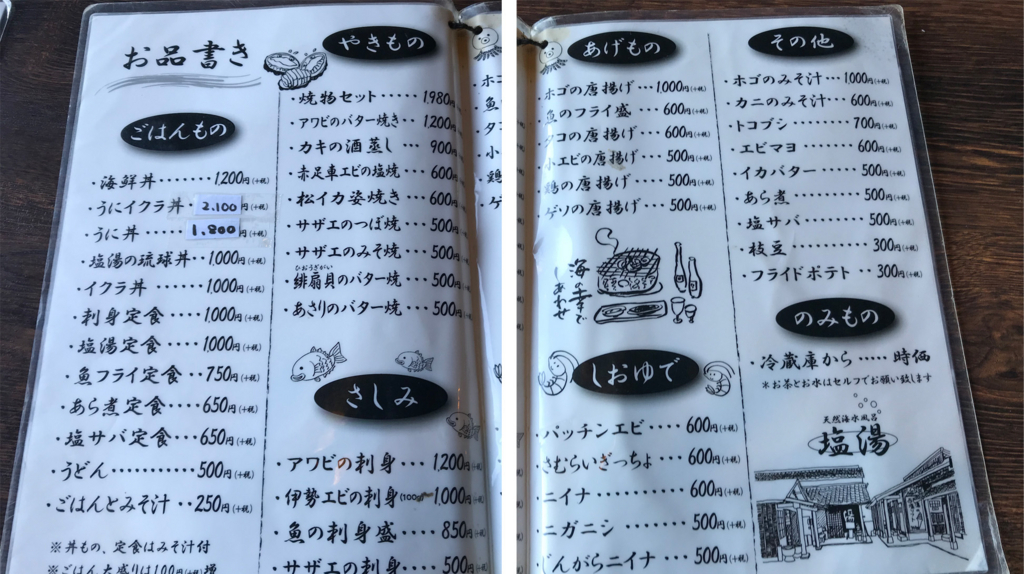 お品書き
ごはんもの
・海鮮丼・・・・・・・1,200円(+税)
・うにイクラ丼 2.100 (+税)
・うに丼 1,800 (+税)
・塩湯の琉球丼・・1,000円(+税)
・イクラ丼・・・・・1,000円(+税)
・刺身定食・・・・1,000円(+税)
・塩湯定食・・・・1,000円(+税)
・魚フライ定食・・・・750円(+税)
・あら煮定食・・・・650円(+税)
・塩サバ定食・・・・650円(+税)
・うどん・・・・・・・500円(+税)
・ごはんとみそ汁・・250円(+税)
※丼もの、定食はみそ汁付
※ごはん大盛りは100円(+税)増
やきもの
・焼物セット・・・・・1,980円
・アワビのバター焼き・・1,200円
・カキの酒蒸し・・・900円
・赤足車エビの塩焼・・・600円
・松イカ姿焼き・・・・600円
・サザエのつぼ焼・・・500円
・サザエのみそ焼・・・500円
ひおうぎがい
・緋扇貝のバター焼・・500円(+税)
・あさりのバター焼・・500円(+税)
さしみ
・アワビの刺身・・・1,200円(+税)
・伊勢エビの刺身(100g) 1,000円(+税)
・魚の刺身盛・・・・850円(+税)
・サザエの刺身・・・500円(+税)
・ホ
・魚
・タ
・小
・鶏
・ゲ
あげもの
・ホゴの唐揚げ・・・・1,000円(+税)
・魚のフライ盛・・・・600円(+税)
タコの唐揚げ・・・・600円(+税)
小エビの唐揚げ・・・500円(+税)
鶏の唐揚げ・・・・500円(+税)
・ゲソの唐揚げ・・・500円(+税)
海の幸で
しあわせ
しおゆで
・パッチンエビ・・・・600円(+税)
・さむらいぎっちょ・・・600円(+税)
・ニイナ・・・・・・・600円(+税)
・ニガニシ・・・・・500円(+税)
がんがらニイナ・・・500円(+税)
その他
・ホゴのみそ汁・・・1,000円(+税)
・カニのみそ汁・・・600円(+税)
・トコブシ・・・・・・700円(+税)
・エビマヨ・・・・・・600円(+税)
・イカバター・・・・・500円(+税)
・あら煮・・・・・・・500円(+税)
・塩サバ・・・・・・・500円(+税)
・枝豆・・・・・・・・300円(+税)
・フライドポテト・・・300円(+税)
のみもの
・冷蔵庫から・・・・・時価
※お茶とお水はセルフでお願い致します
天然海水風呂
塩湯